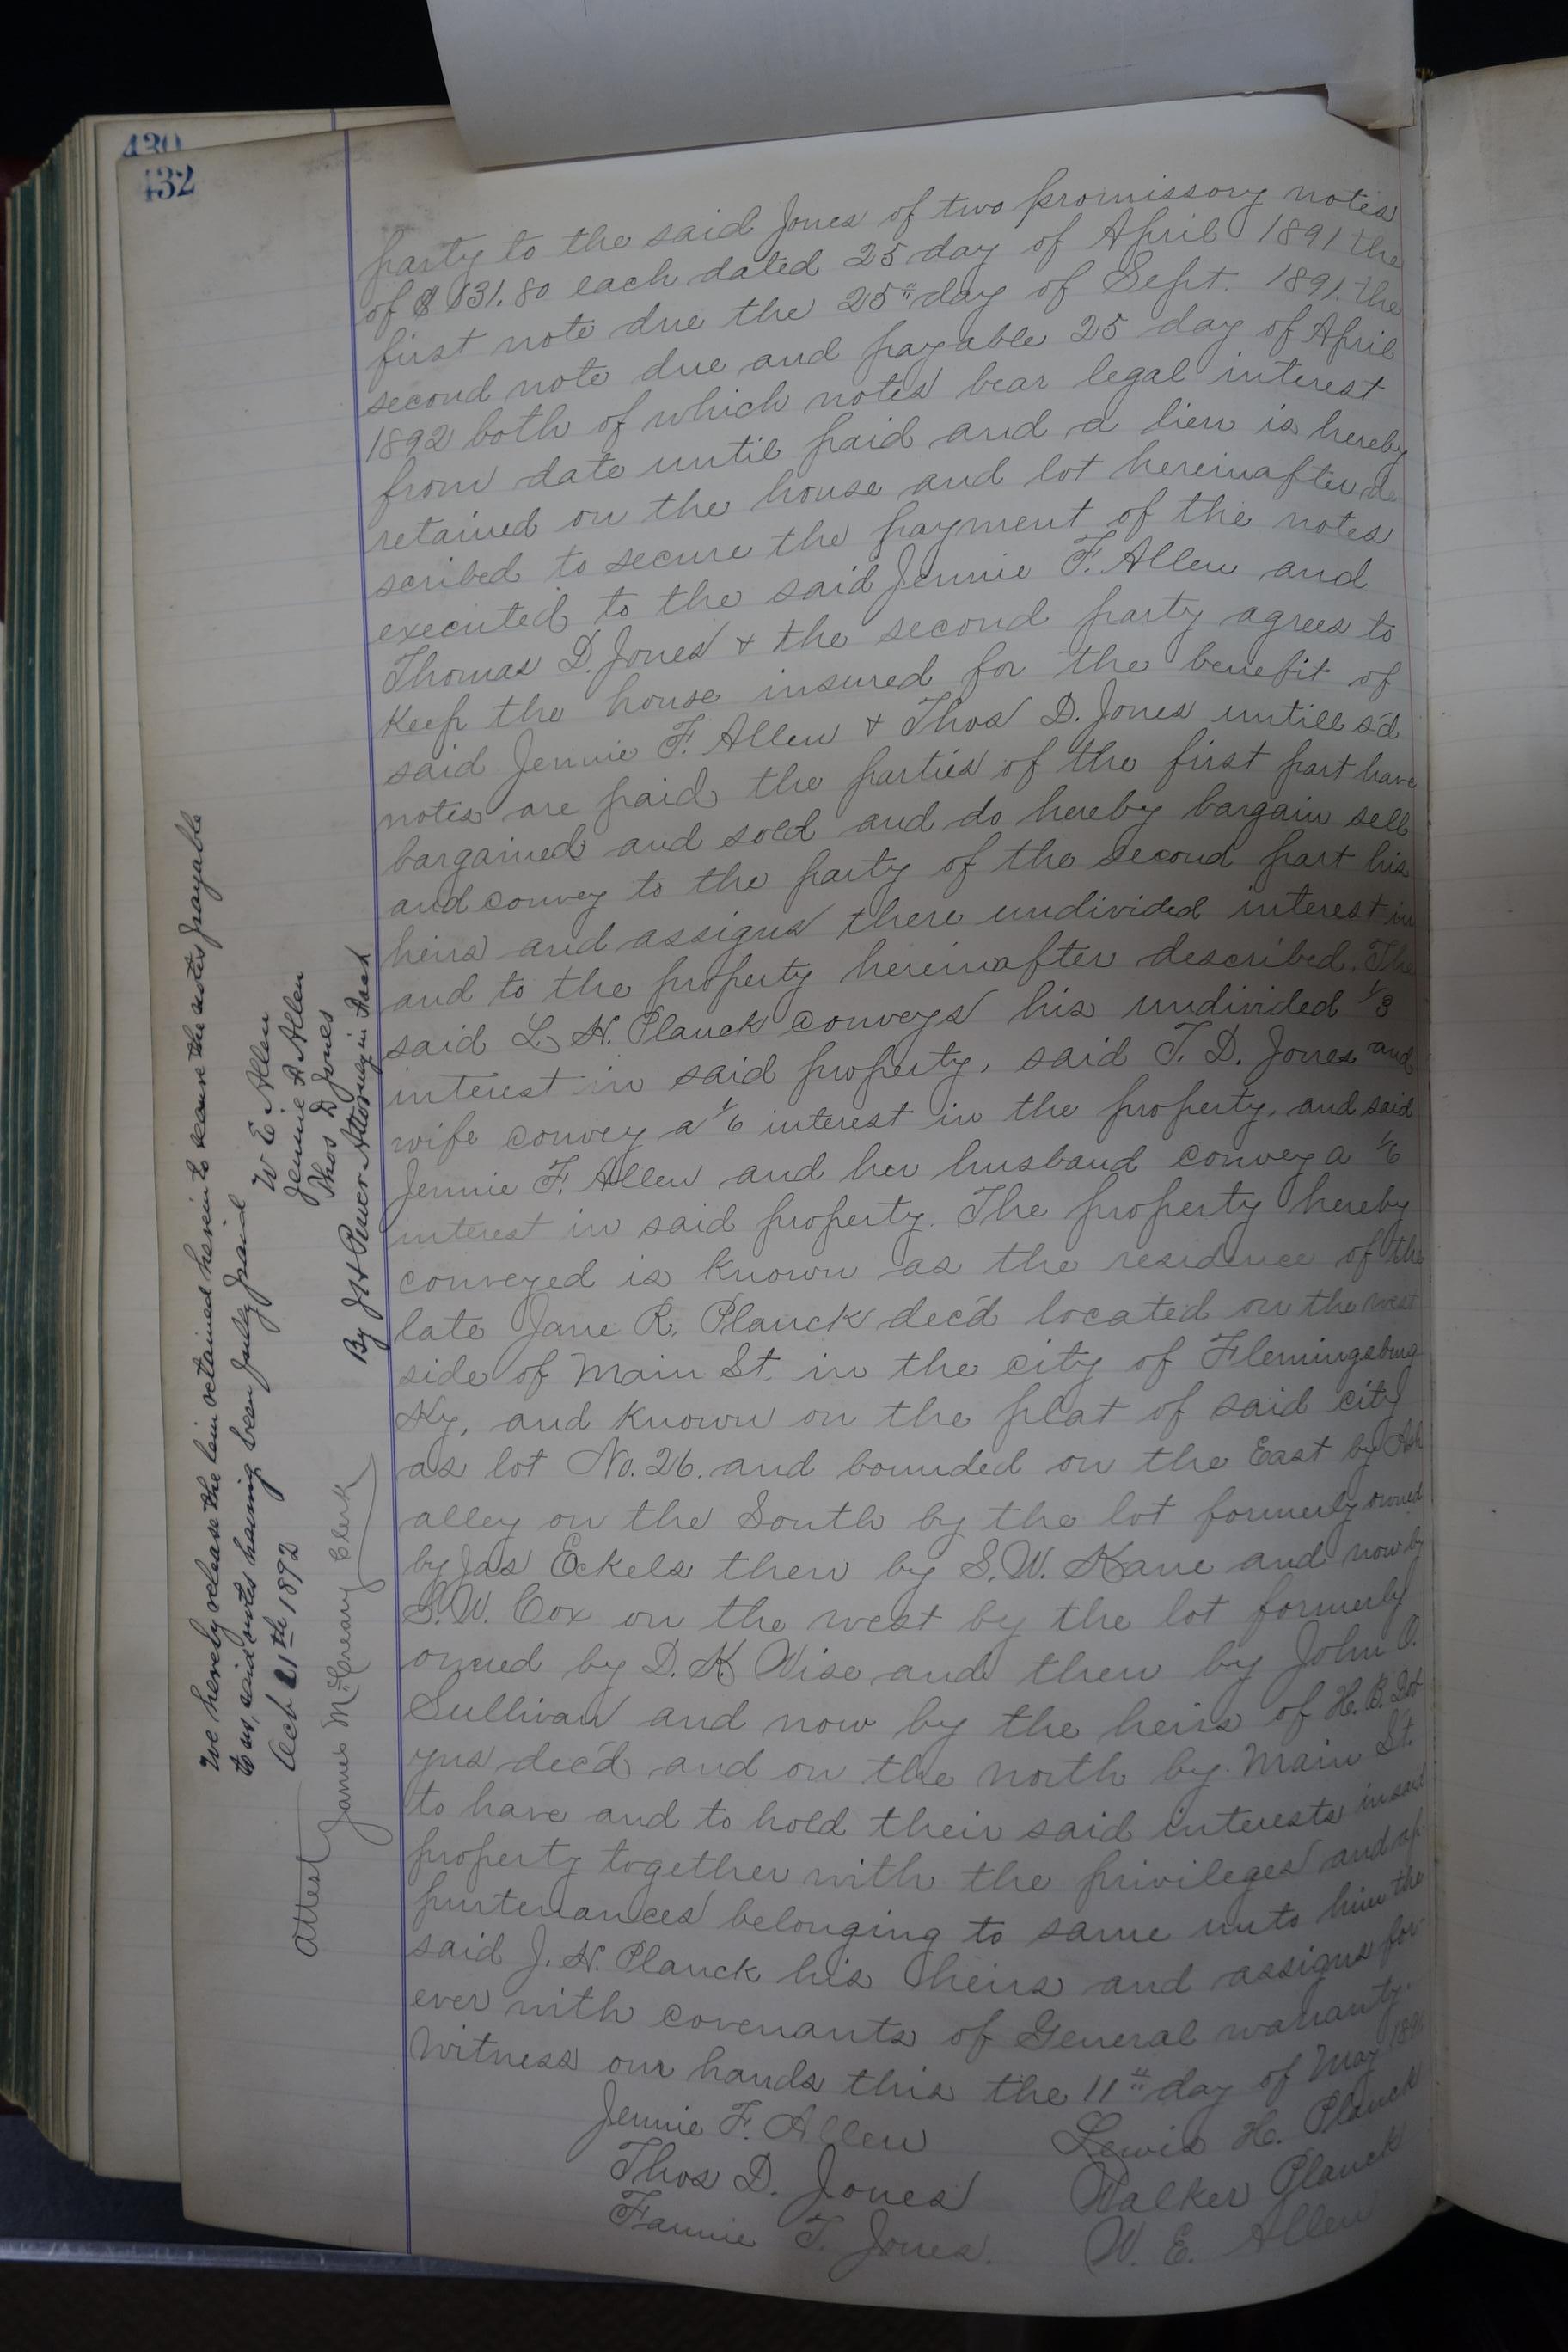 430
432
party to the said Jones of two promissory notes
of $ 131.80 each dated 25 day of April 1891 the
first note due the 25" day of Sept. 1891. the
second note due and payable 25 day of April
1892 both of which notes bear legal interest
from date until paid and a lien is hereby
retained on the house and lot hereinafter de
scribed to secure the payment of the notes
executed to the said Jennie F. Allen and
Thomas D. Jones & the second party agrees to
Keep the house insured for the benefit of
said Jennie F. Allen & Thos D. Jones untill s'd
notes are paid, the parties of the first part have
bargained and sold and do hereby bargain sell
and convey to the party of the second part his
heirs and assigns there undivided interest in
and to the property hereinafter described. The
said L. H. Planck conveys his undivided 1/3
interest in said property, said T. D. Jones and
wife convey a 1/6 interest in the property, and said
Jennie F. Allen and her husband convey a 1/6
interest in said property. The property hereby
conveyed is known as the residence of the
late Jane R. Planck dec'd located on the west
side of Main St. in the city of Flemingsburg
Ky, and known on the plat of said city
as lot No. 26. and bounded on the East by Ash
alley on the South by the lot formerly owned
by Jas Eckels then by S. W. Kane and now by
S. W. Cox on the west by the lot formerly
owned by D. K. Wise and then by John O.
Sullivan and now by the heirs of H. B. Dob
yns dec'd and on the north by Main St.
to have and to hold their said interests in said
property together with the privileges and ap-
purtenances belonging to same unto him the
said J. H. Planck his heirs and assigns for-
ever with covenants of General warranty.
Witness our hands this the 11" day of May
Jennie F. Allen Lewis H. Planck
Thos D. Jones Walker Planck
Fannie T. Jones. W. E. Allen
We hereby release the lein retained herein to secure the notes payable
to us, said notes having been fully paid
Oct 21th 1892
W E Allen
Jennie F Allen
Thos D Jones
By J H Power Attorney in Fact
Attest James McCreary Clerk